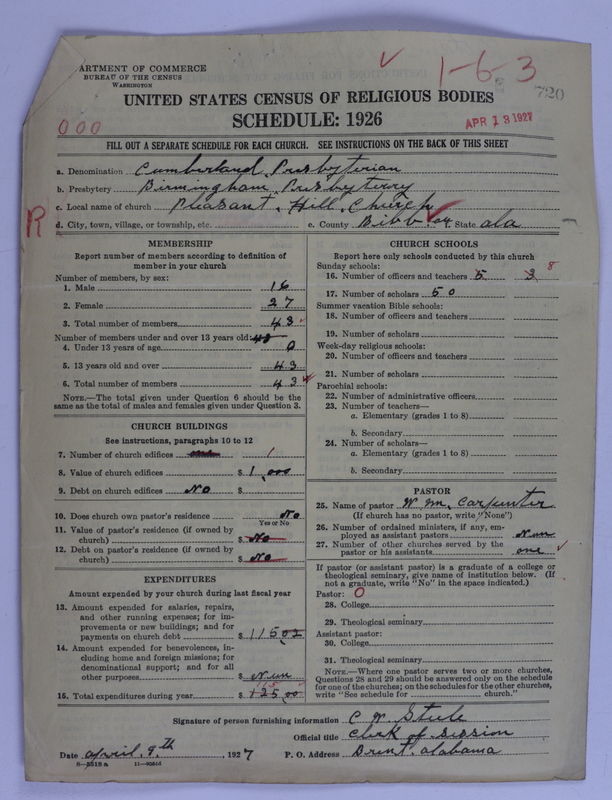 ARTMENT OF COMMERCE
BUREAU OF THE CENSUS
WASHINGTON
1-6-3
720
UNITED STATES CENSUS OF RELIGIOUS BODIES
SCHEDULE: 1926
000
APR 13 1927
FILL OUT A SEPARATE SCHEDULE FOR EACH CHURCH. SEE INSTRUCTIONS ON THE BACK OF THIS SHEET
a. Denomination Cumberland Presbyterian
b. Presbytery Birmingham Presbyterry
c. Local name of church Pleasant Hill Church
R
d. City, town, village, or township, etc. e. County Bibb co. State ala
MEMBERSHIP
Report number of members according to definition of member in your church
Number of members, by sex:
1. Male 16
2. Female 27
3. Total number of members 43
Number of members under and over 13 years old:
4. Under 13 years of age 0
5. 13 years old and over 43
6. Total number of members 43
NOTE.—The total given under Question 6 should be
same as the total of males and females given under Question 3.
CHURCH BUILDINGS
See instructions, paragraphs 10 to 12
7. Number of church edifices one 1
8. Value of church edifices $ 1,000
9. Debt on church edifices No $
10. Does church own pastor's residence No
Yes or No
11. Value of pastor's residence (if owned by
church) $ No
12. Debt on pastor's residence (if owned by
church) $ No
EXPENDITURES
Amount expended by your church during last fiscal year
13. Amount expended for salaries, repairs,
and other running expenses; for im-
provements or new buildings; and for
payments on church debt $ 115
14. Amount expended for benevolences, in-
cluding home and foreign missions; for
denominational support; and for all
other purposes $ Nun
15. Total expenditures during year $
CHURCH SCHOOLS
Report here only schools conducted by this church
Sunday schools:
16. Number of officers and teachers 5 3 8
17. Number of scholars 50
Summer vacation Bible schools:
18. Number of officers and teachers
19. Number of scholars
Week-day religious schools:
20. Number of officers and teachers
21. Number of scholars
Parochial schools:
22. Number of administrative officers
23. Number of teachers—
a. Elementary (grades 1 to 8)
b. Secondary
24. Number of scholars—
a. Elementary (grades 1 to 8)
b. Secondary
PASTOR
25. Name of pastor W. M. Carpenter
(If church has no pastor, write "None")
26. Number of ordained ministers, if any, em-
ployed as assistant pastors Nun
27. Number of other churches served by the
pastor or his assistants one
If pastor (or assistant pastor) is a graduate of a college or
theological seminary, give name of institution below. (If
not a graduate, write "No" in the space indicated.)
Pastor: 0
28. College
29. Theological seminary
Assistant pastor:
30. College
31. Theological seminary
NOTE.—Where one pastor serves two or more churches,
Questions 28 and 29 should be answered only on the schedule
for one of the churches; on the schedules for the other churches,
write "See schedule for ........ church."
Signature of person furnishing information C W Steele
Official title Clerk of Session
Date April, 9th, 1927 P. O. Address Brent, alabama